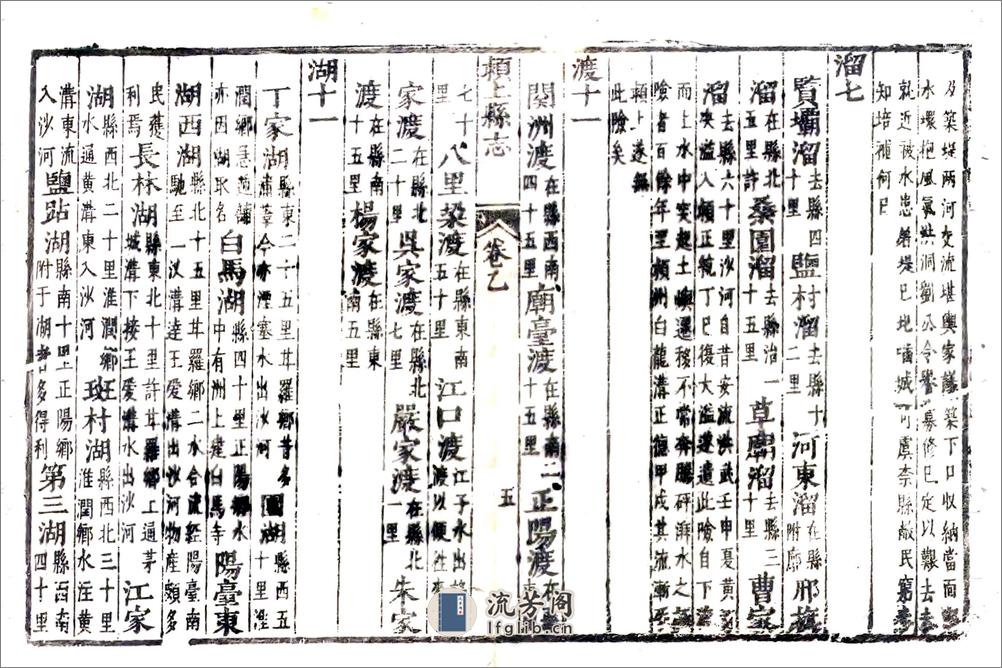 及築堤兩河交流堪輿家議築下口收納當面
水環抱風氣洪洞劉公令譽募修已定以艱去
就近被水患者堤已圮嚙城可虞柰縣敝民窮
知培補何日
溜七
賈壩溜去縣四十里 鹽村溜去縣十二里 河東溜在縣附廓
溜在縣北五里許 桑園溜去縣治一十五里 草廟溜去縣三十里 曹家
溜去縣六十里沙河自昔安流洪武壬申夏黃
河 溢入潁正統丁巳復大溢遭此險自下
而上水中突起土 遷移不常奔騰砰湃水之
險者百餘年里潁州白龍溝正德甲戌其流漸
潁上遂無此險矣
渡十一
閔洲渡在縣西南四十五里 廟臺渡在縣南二十五里 正陽渡
潁上縣志 卷乙 五
七十里 八里垜渡在縣東南五十里 江口渡江子水出 渡以便往來
家渡在縣北二十里 吳家渡在縣北七里 嚴家渡在縣北一里 朱家
渡在縣南十五里 楊家渡在縣東南五里
湖十一
丁家湖縣東二十五里甘羅鄉昔多 葦今亦湮塞水出沙河 湖縣西五十里
潤鄉 亦因湖取名 白馬湖縣四十里正陽鄉水中有洲上建白馬寺 陽臺東
湖西湖縣北十五里甘羅鄉二水合流經陽臺南馳至一汊溝達王愛溝出沙河物產頗多
民蔑利焉 長林湖縣東北十里許甘羅鄉上通茅城溝下接王愛溝水出沙河 江家
湖縣西北二十里淮潤鄉 湖水通黃溝東入沙河 班村湖縣西北三十里淮潤鄉水注黃
溝東流入沙河 鹽跕湖縣南十里正陽鄉附于湖者多得利 第三湖縣西南四十里
流芳阁
lfglib.cn